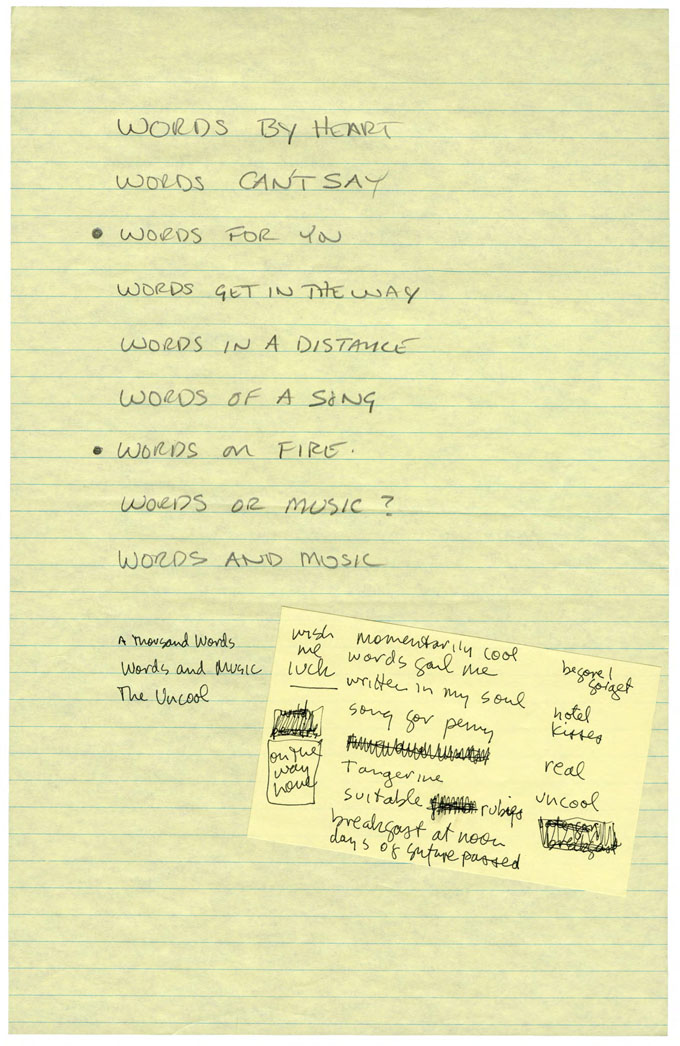 WORDS BY HEART
WORDS CAN'T SAY
• WORDS FOR YOU
WORDS GET IN THE WAY
WORDS IN A DISTANCE
WORDS OF A SONG
• WORDS ON FIRE.
WORDS OR MUSIC?
WORDS AND MUSIC
A Thousand Words
Words and Music
The Uncool
wish
me
luck
on the
way
home
momentarily cool
words fail me
written in my soul
song for penny
Tangerine
suitable rubies
breakfast at noon
days of future passed
before I
forget
hotel
kisses
real
uncool
breakfast